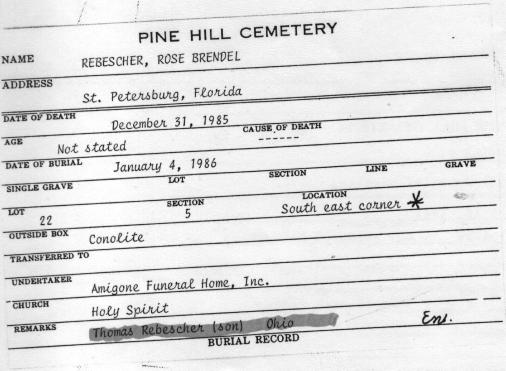 PINE HILL CEMETERY
NAME REBESCHER, ROSE BRENDEL
ADDRESS St. Petersburg, Florida
DATE OF DEATH December 31, 1985 CAUSE OF DEATH
AGE Not stated ------
DATE OF BURIAL January 4, 1986
SINGLE GRAVE LOT SECTION LINE GRAVE
LOT 22 SECTION 5 LOCATION South east corner *
OUTSIDE BOX Conolite
TRANSFERRED TO
UNDERTAKER Amigone Funeral Home, Inc.
CHURCH Holy Spirit
REMARKS Thomas Rebescher (son) Ohio Ens.
BURIAL RECORD